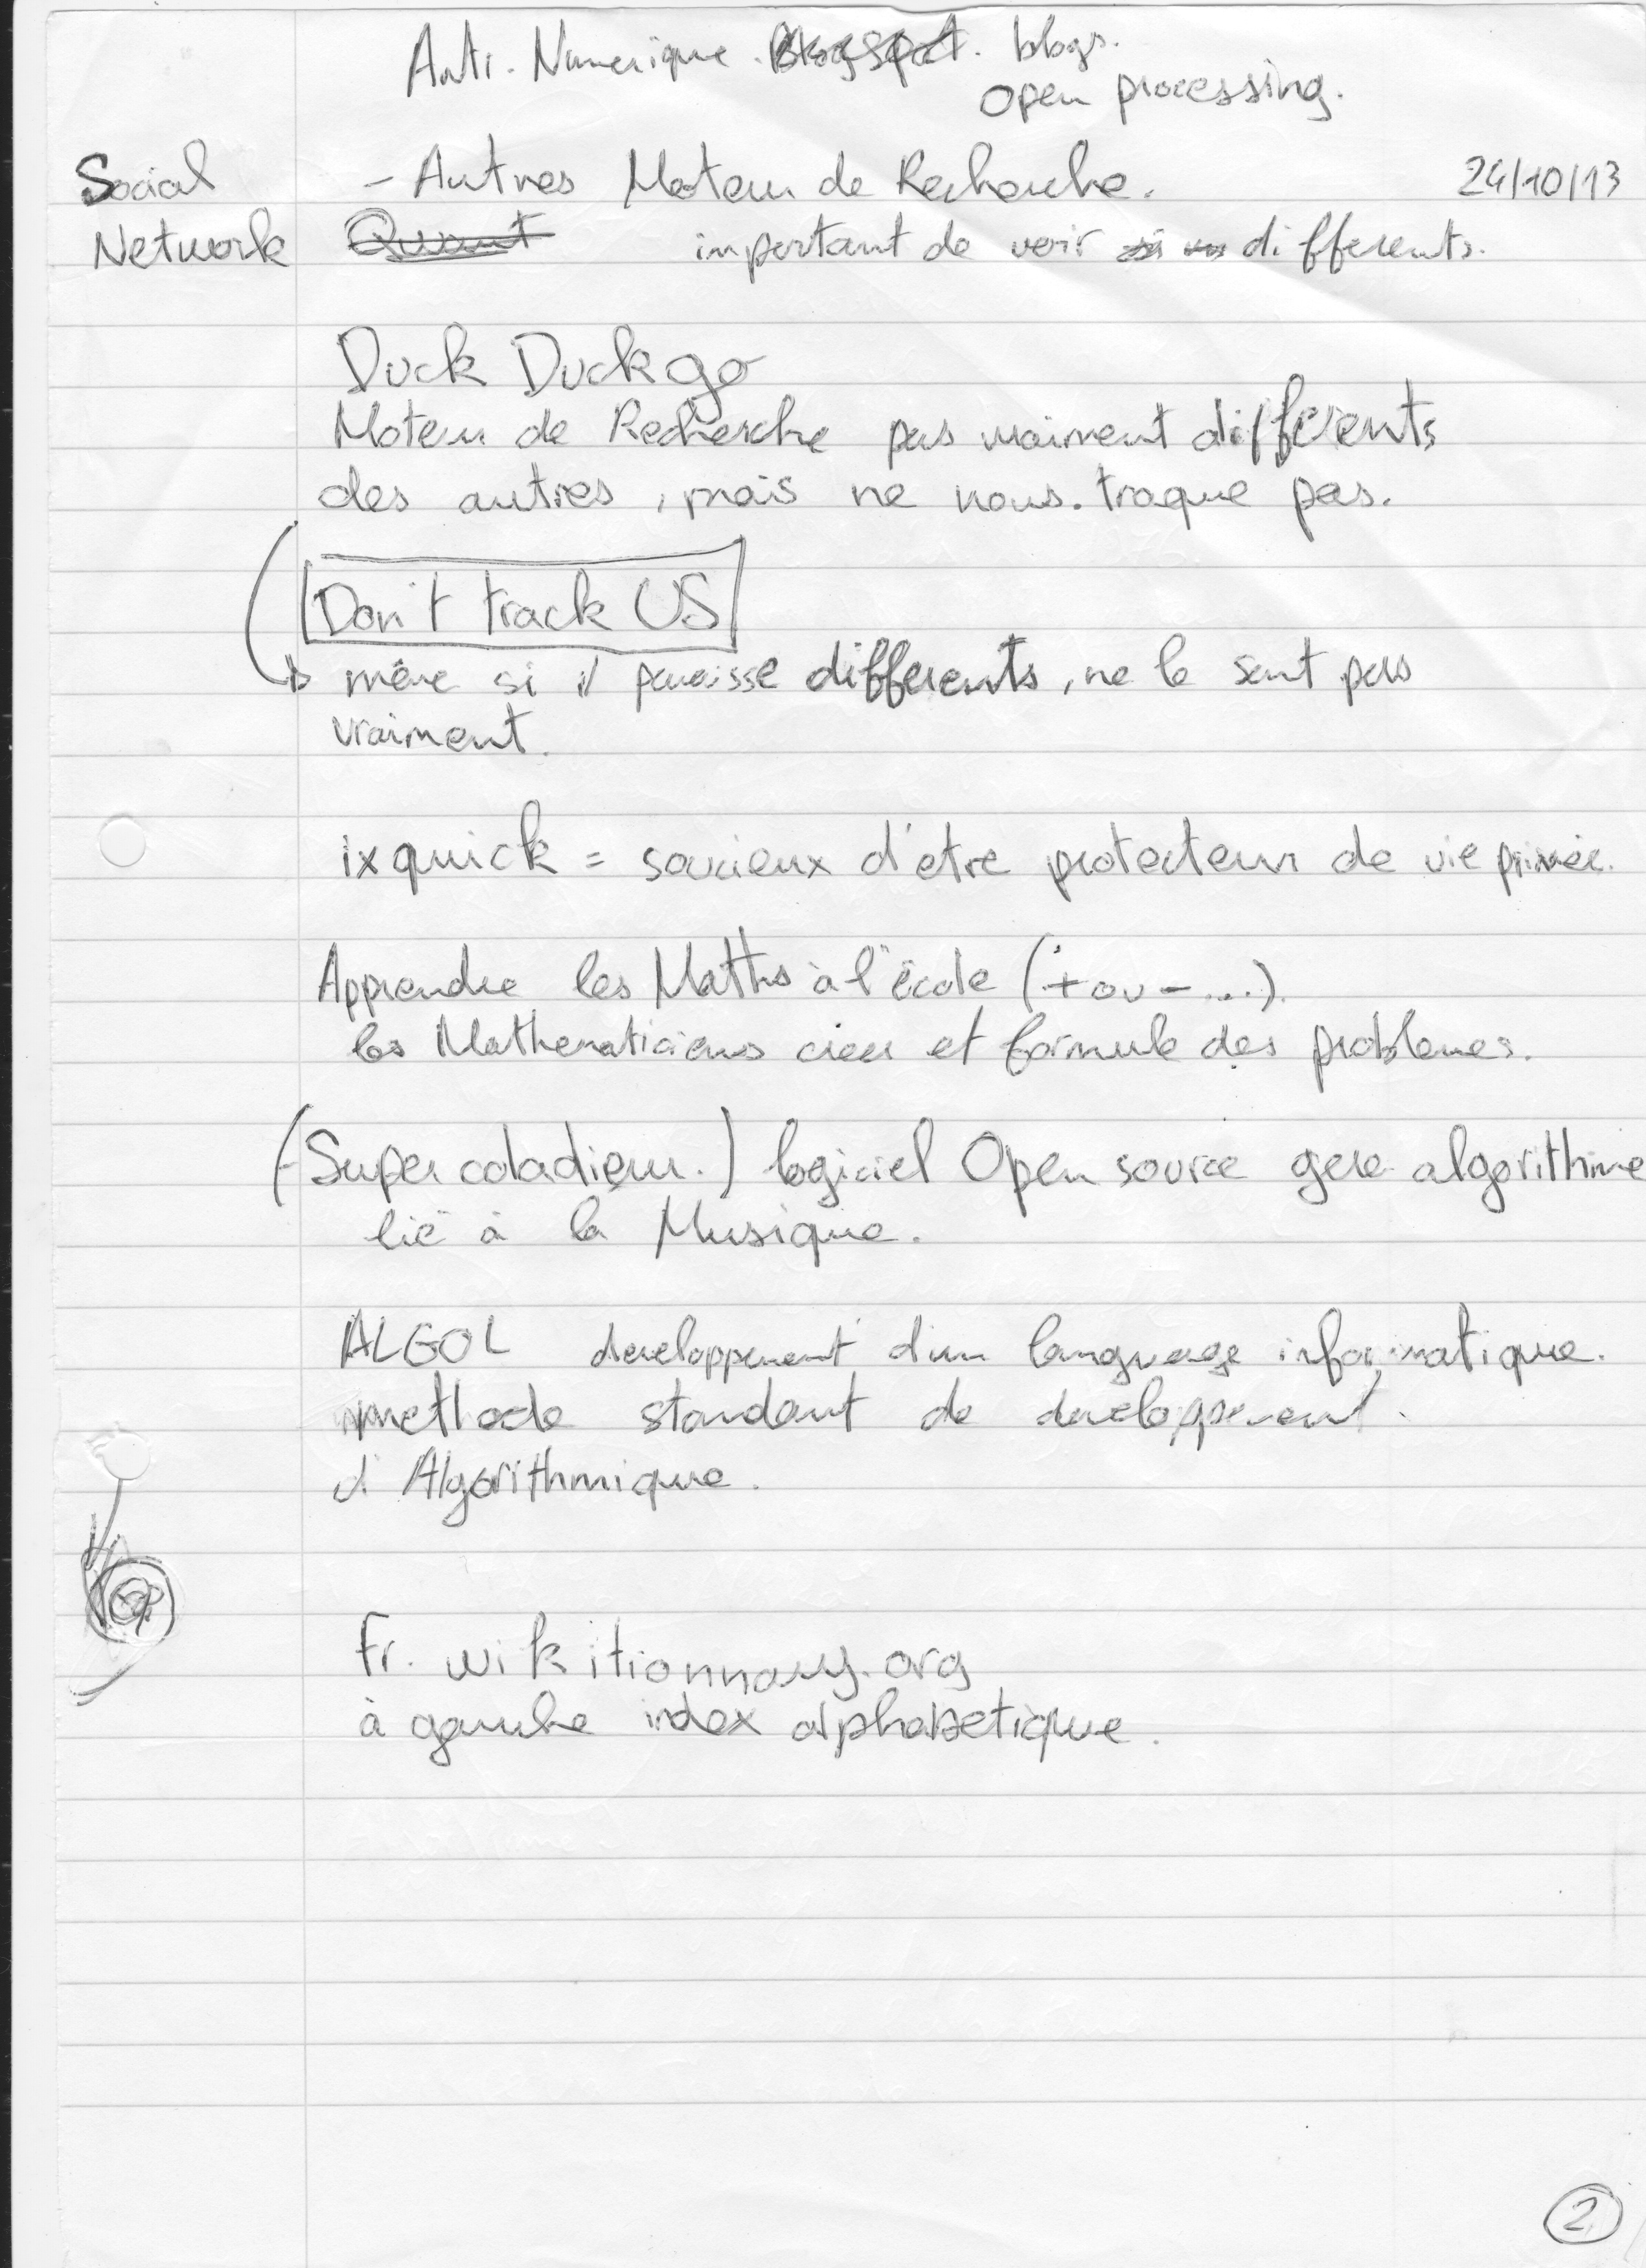 Anti. Numerique. Blogspot. blogs.
Open processing.
Social - Autres Moteur de Recherche. 24/10/13
Network Qwant important de voir si differents.
Duck Duck go
Moteur de Recherche pas vraiment différents
des autres, mais ne nous. traque pas.
Don't track US
même si il paraisse differents, ne le sont pas
vraiment.
ixquick = soucieux d'etre protecteur de vie privée.
Apprendre les Maths à l'école (+ ou - ....).
les Mathematiciens créer et formule des problemes.
(Super coladieur.) logiciel Open source gere algorithme
lié à la Musique.
ALGOL developpement d'un language informatique.
methode standart de developpement.
d'Algorithmique.
Fr. wikitionnary.org
à gauche index alphabetique.
2